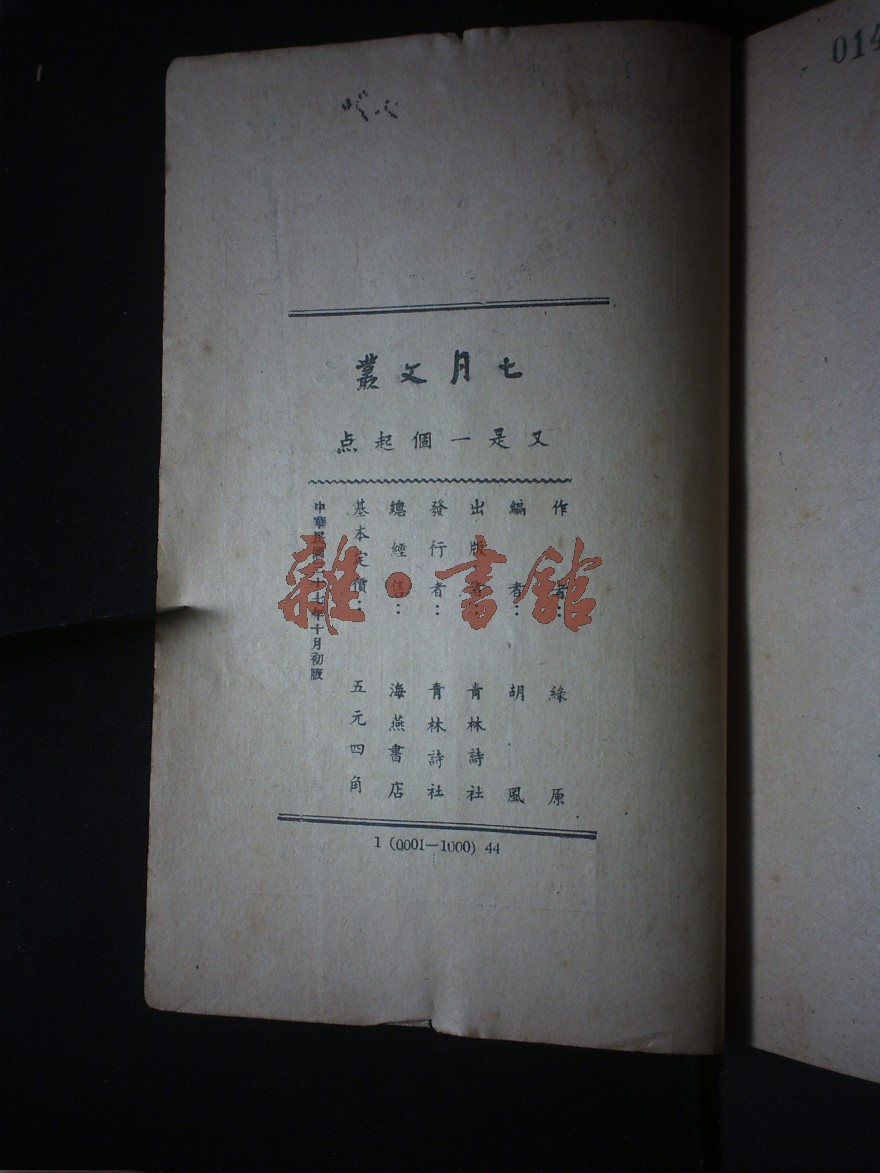 七月文叢
又是一個起点
作者：綠原
編者：胡風
出版者：青林詩社
發行者：青林詩社
總經售：海燕書店
基本定價：五元四角
中華民國三十七年十月初版
1 (0001—1000) 44
雜·書館
014